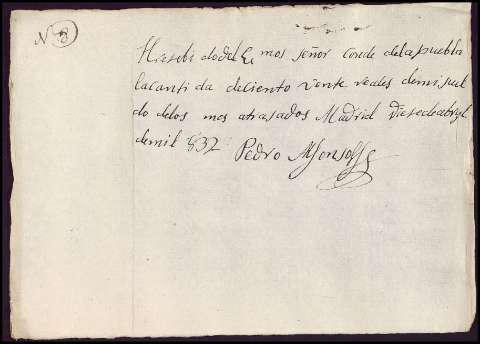 N 8
Hresebi dodel Ec mos señor Conde dela puebla
lacanti da deciento vente reales demi suel
do delos mes atrasados Madrid Diesedeabryl
demil 832 Pedro Alfonso